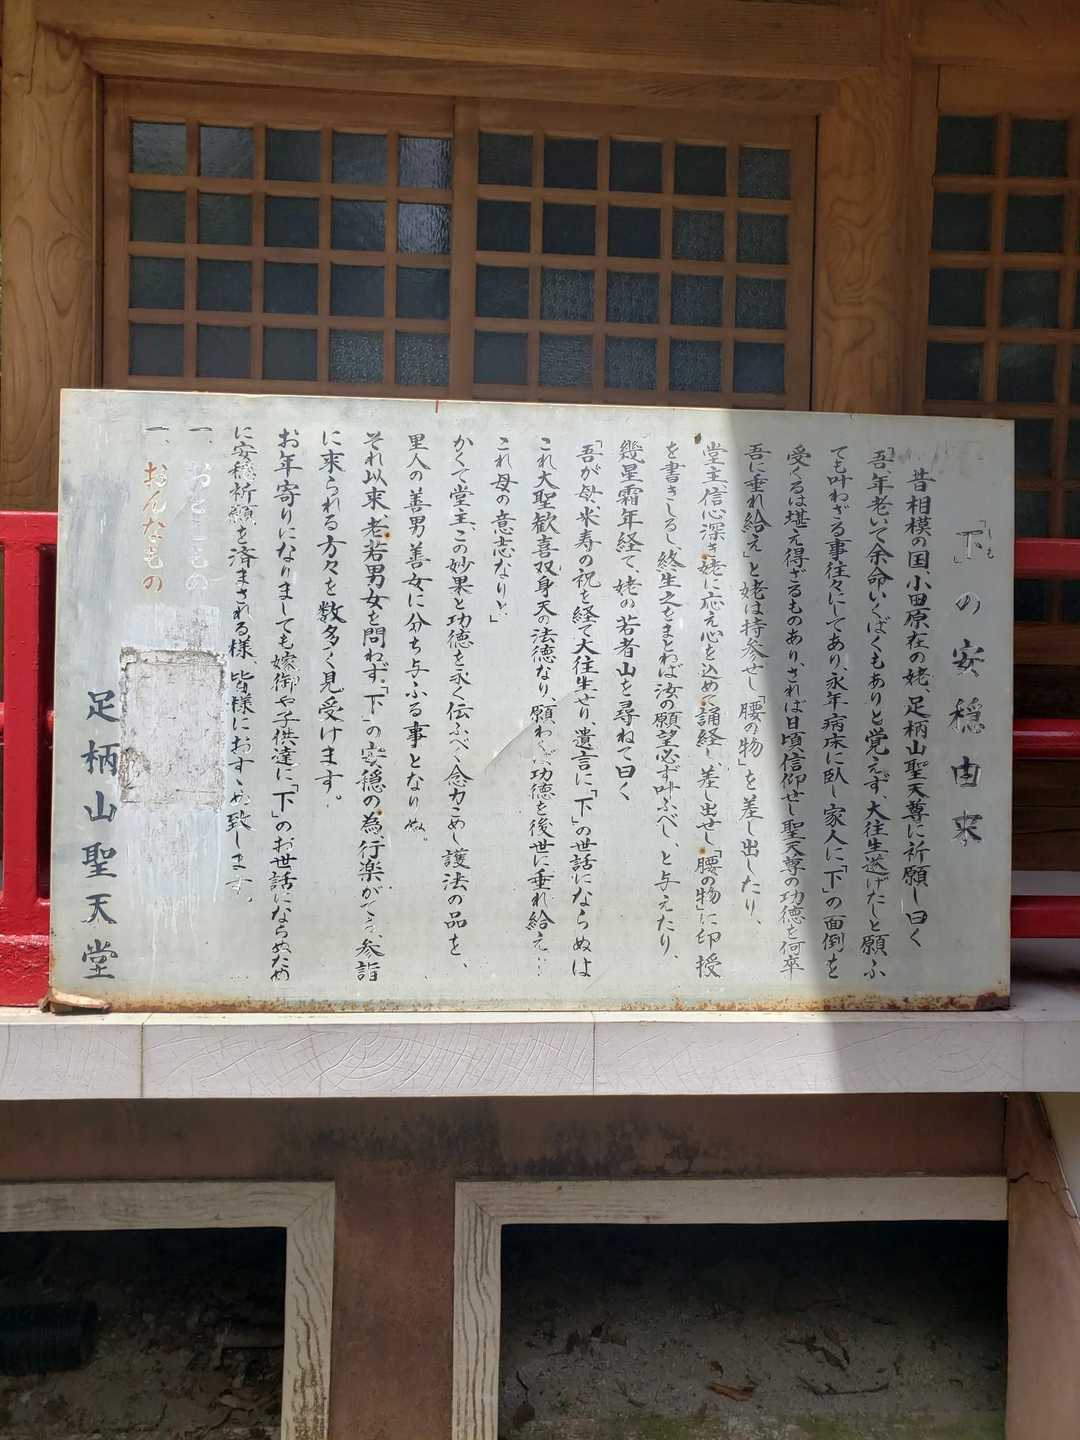 「下」の安穏由来
しも
昔相模の国、小田原在の姥、足柄山聖天尊に祈願し曰く
「吾、年老いて余命いくばくもありと覚えず、大往生遂げたしと願ふ
ても叶わざる事往々にしてあり永年病床に臥し家人に「下」の面倒を
受くるは堪え得ざるものあり、されば日頃信仰せし聖天尊の功徳を何卒
吾に垂れ給え」と姥は持参せし「腰の物」を差し出したり、
堂主、信心深き姥に応え心を込めて誦経し、差し出せし「腰の物」に印授
を書きしるし終生之をまとわば汝の願望必ず叶ふべし、と与えたり、
幾星霜年経て、姥の若者山を尋ねて曰く
「吾が母、米寿の祝を経て大往生せり、遺言に「下」の世話にならぬは
これ大聖歓喜双身天の法徳なり、願わくば功徳を後世に垂れ給え…
これ母の意志なりと」
かくて堂主、この妙果と功徳を永く伝ふべく念力こめし護法の品を、
里人の善男善女に分ち与ふる事となりぬ。
それ以来、老若男女を問わず、「下」の安穏の為、行楽がてら、参詣
に来られる方々を数多く見受けます。
お年寄りになりましても嫁御や子供達に、「下」のお世話にならぬため
に安穏祈願を済まされる様、皆様におすゝめ致します。
一、おとこもの
一、おんなもの
足柄山聖天堂